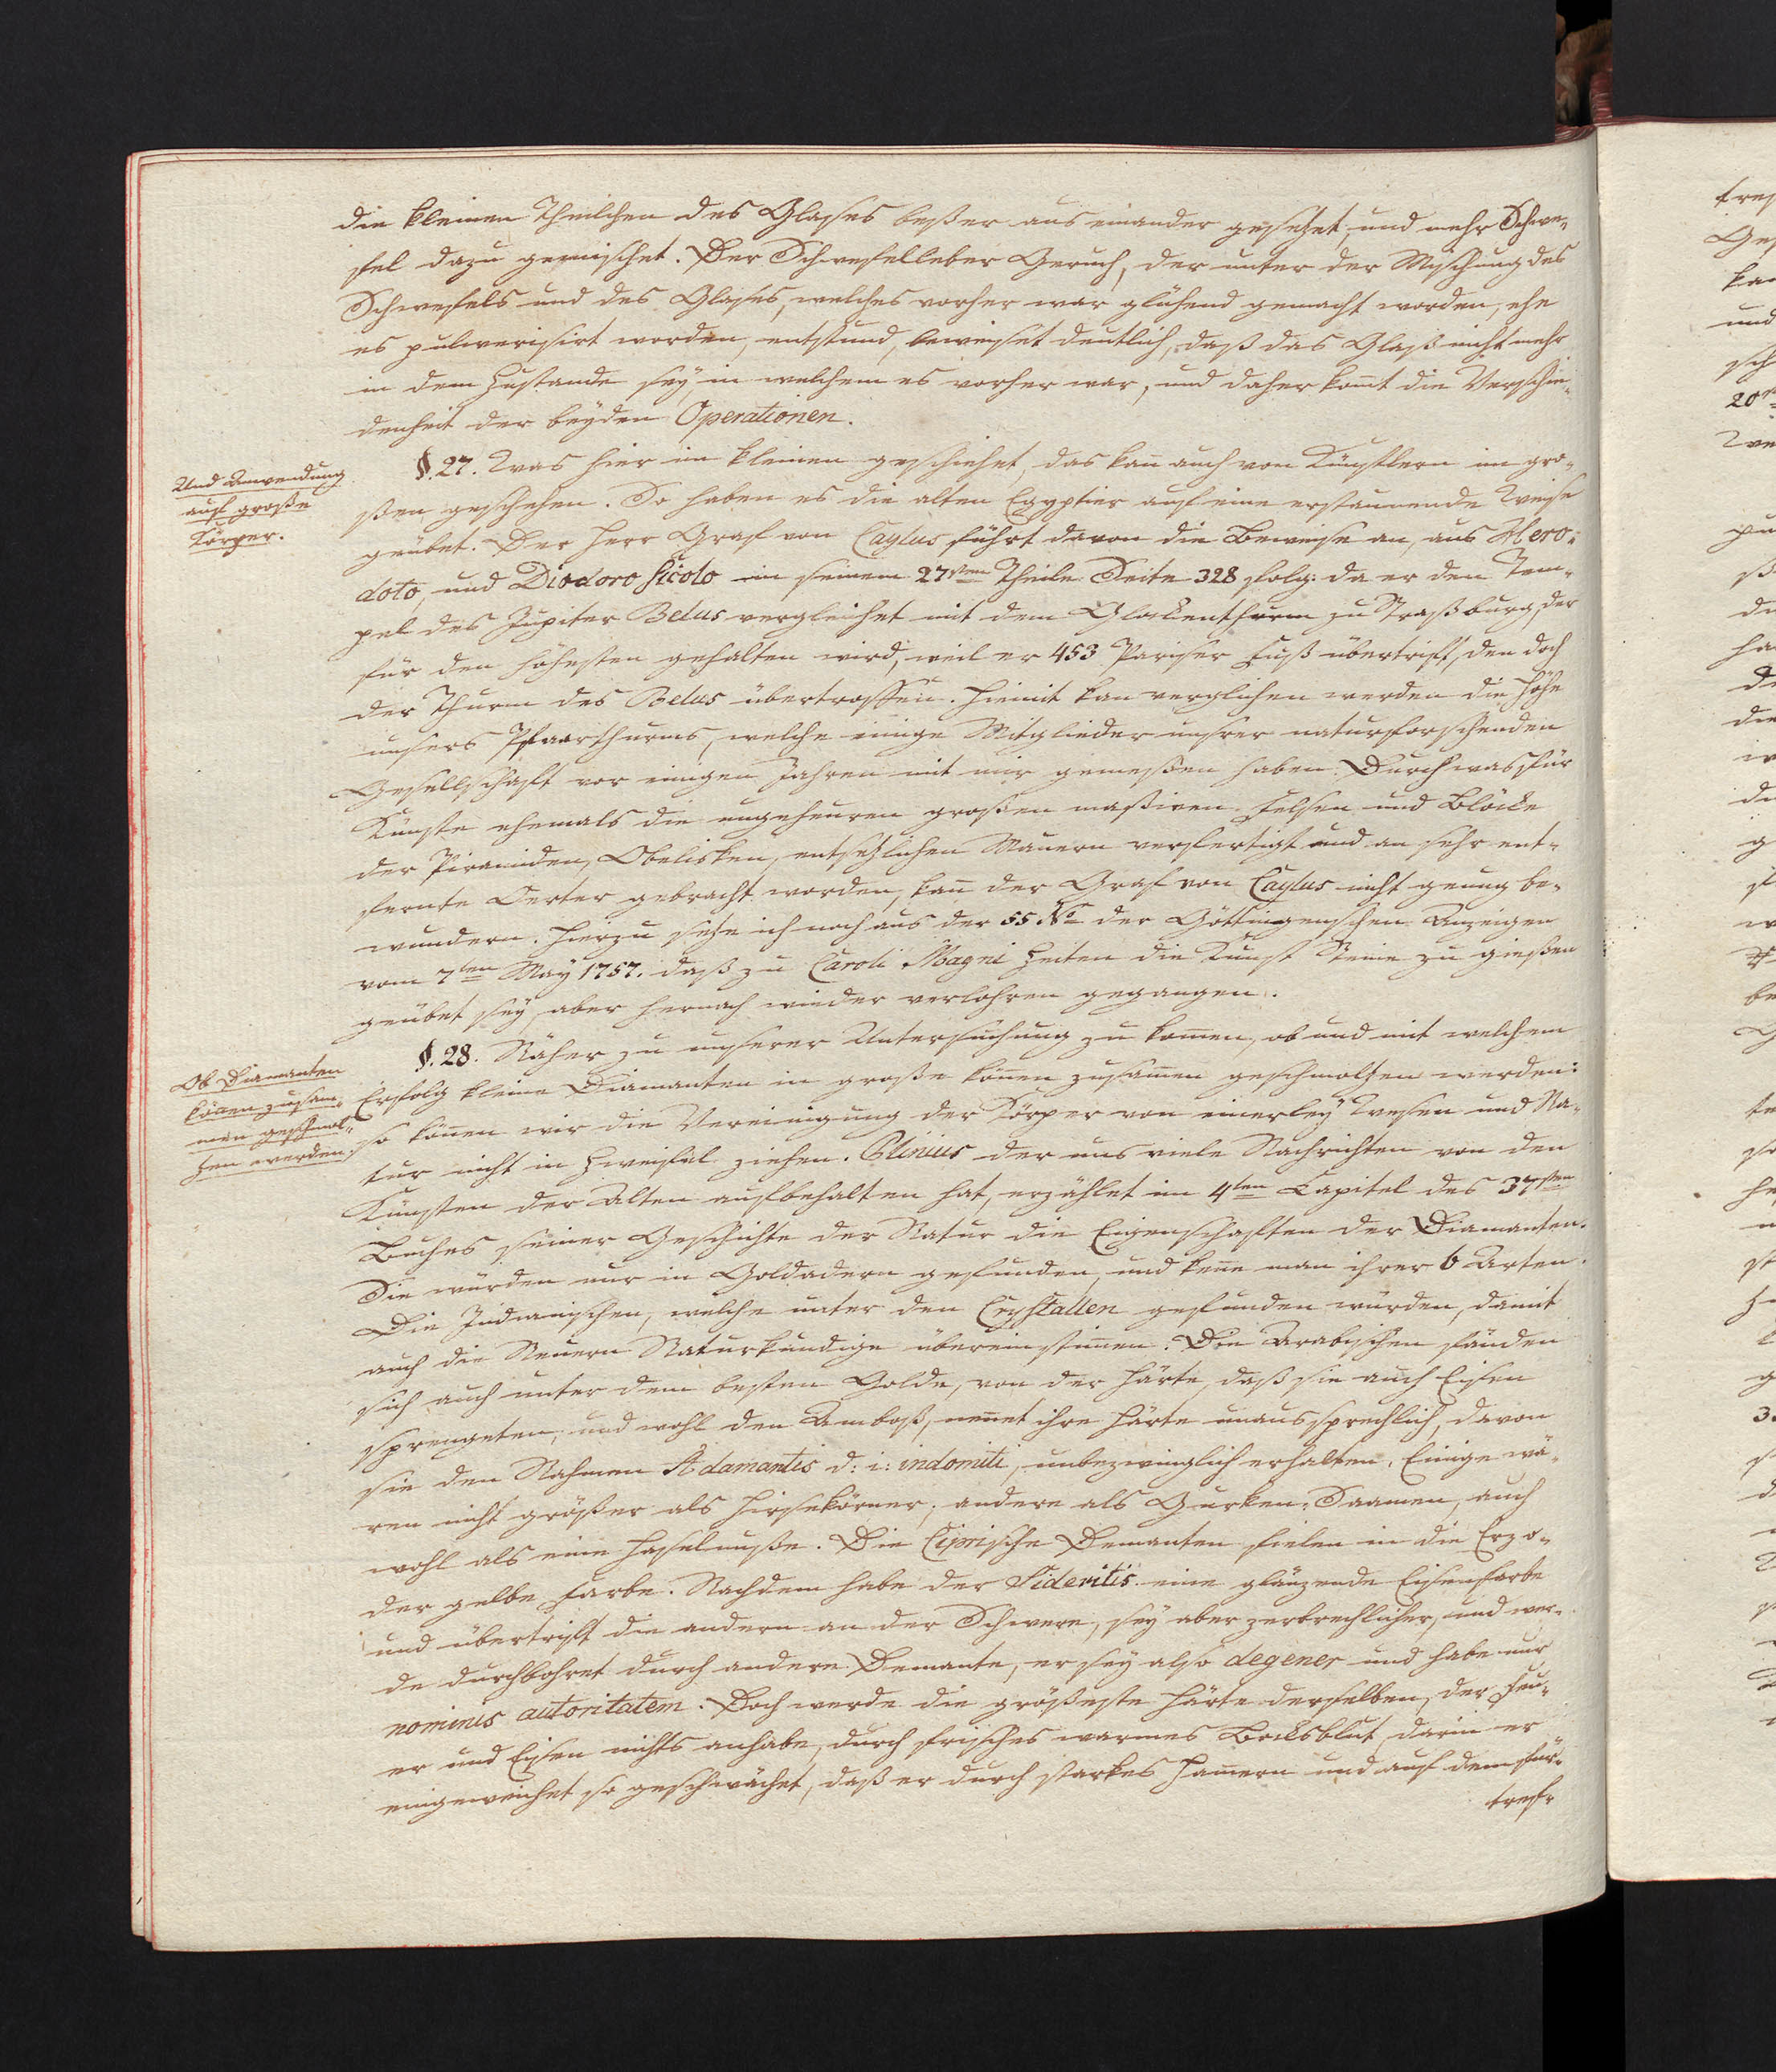 die kleinen Theilchen des Glases beßer aus einander gesetzet, und mehr Schwe-
fel dazu gemischet. Der Schwefelleber Geruch, der unter der Mischung des
Schwefels und des Glases, welches vorher war glühend gemacht worden, ehe
es pulverisirt worden, entstund, beweiset deutlich, daß das Glaß nicht mehr
in dem Zustande sey in welchem es vorher war, und daher komt die Verschie-
denheit der beyden Operationen.
Und Anwendung
auf große
Körper.
§. 27. Was hier im kleinen geschiehet, das kan auch von Künstlern im gro-
ßen geschehen. So haben es die alten Egyptier auf eine erstaunende Weise
geübet. Der Herr Graf von Caylus führt davon die Beweise an, aus Hero-
doto, und Diodoro Sicolo in seinem 27sten Theile Seite 328 folg: da er den Tem-
pel des Jupiter Belus vergleichet mit dem Glockenthurm zu Straßburg, der
für den höhesten gehalten wird, weil er 453 Pariser Fuß übertrift, den doch
der Thurm des Belus übertroffen. Hiemit kan verglichen werden die Höhe
unsers Pfaarthurms, welche einige Mitglieder unsrer naturforschenden
Gesellschaft vor einigen Jahren mit mir gemeßen haben. Durch was für
Künste ehemals die ungeheuren großen maßiven Felsen und Blöcke
der Piramiden, Obelisken, entsetzlichen Mauern verfertigt und an sehr ent-
fernte Oerter gebracht worden, kan der Graf von Caylus nicht genug be-
wundern. Hierzu setze ich noch aus der 55 No der Göttingenschen Anzeigen
vom 7ten May 1757. daß zu Caroli Magni Zeiten die Kunst Steine zu gießen
geübet sey, aber hernach wieder verlohren gegangen.
Ob Diamanten
könen zusam-
men geschmol-
zen werden.
§. 28. Näher zu unserer Untersuchung zu komen, ob und mit welchem
Erfolg kleine Diamanten in große könen zusamen geschmoltzen werden:
so könen wir die Vereinigung der Körper von einerley Wesen und Na-
tur nicht in Zweifel ziehen. Plinius der uns viele Nachrichten von den
Künsten der Alten aufbehalten hat, erzählet im 4ten Capitel des 37sten
Buches seiner Geschichte der Natur die Eigenschaften der Diamanten.
Sie würden nur in Goldadern gefunden, und kene man ihrer 6 Arten.
Die Indianischen, welche unter den Crystallen gefunden würden, damit
auch die Neuern Naturkundige übereinstimen. Die Arabischen fänden
sich auch unter dem besten Golde, von der Härte, daß sie auch Eisen
sprengeten, und wohl den Amboß, nenet ihre Härte unaussprechlich, davon
sie den Nahmen Adamantis d: i: indomiti, unbezwinglich erhalten. Einige wä-
ren nicht größer als Hirsekörner, andere als Gurken-Saamen, auch
wohl als eine Haselnuße. Die Ciprische Demanten fielen in die Erz o-
der gelbe Farbe. Nachdem habe der Sideritis eine glänzende Eisenfarbe
und übertrift die andern an der Schwere, sey aber zerbrechlicher, und wer-
de durchbohret durch andere Demante, er sey also degener und habe nur
nominis autoritatem. Doch werde die größeste Härte derselben, der Feu-
er und Eisen nichts anhabe, durch frisches warmes Bocksblut, darin er
eingeweichet so geschwächet, daß er durch starkes Hamern und auf dem für-
tref-